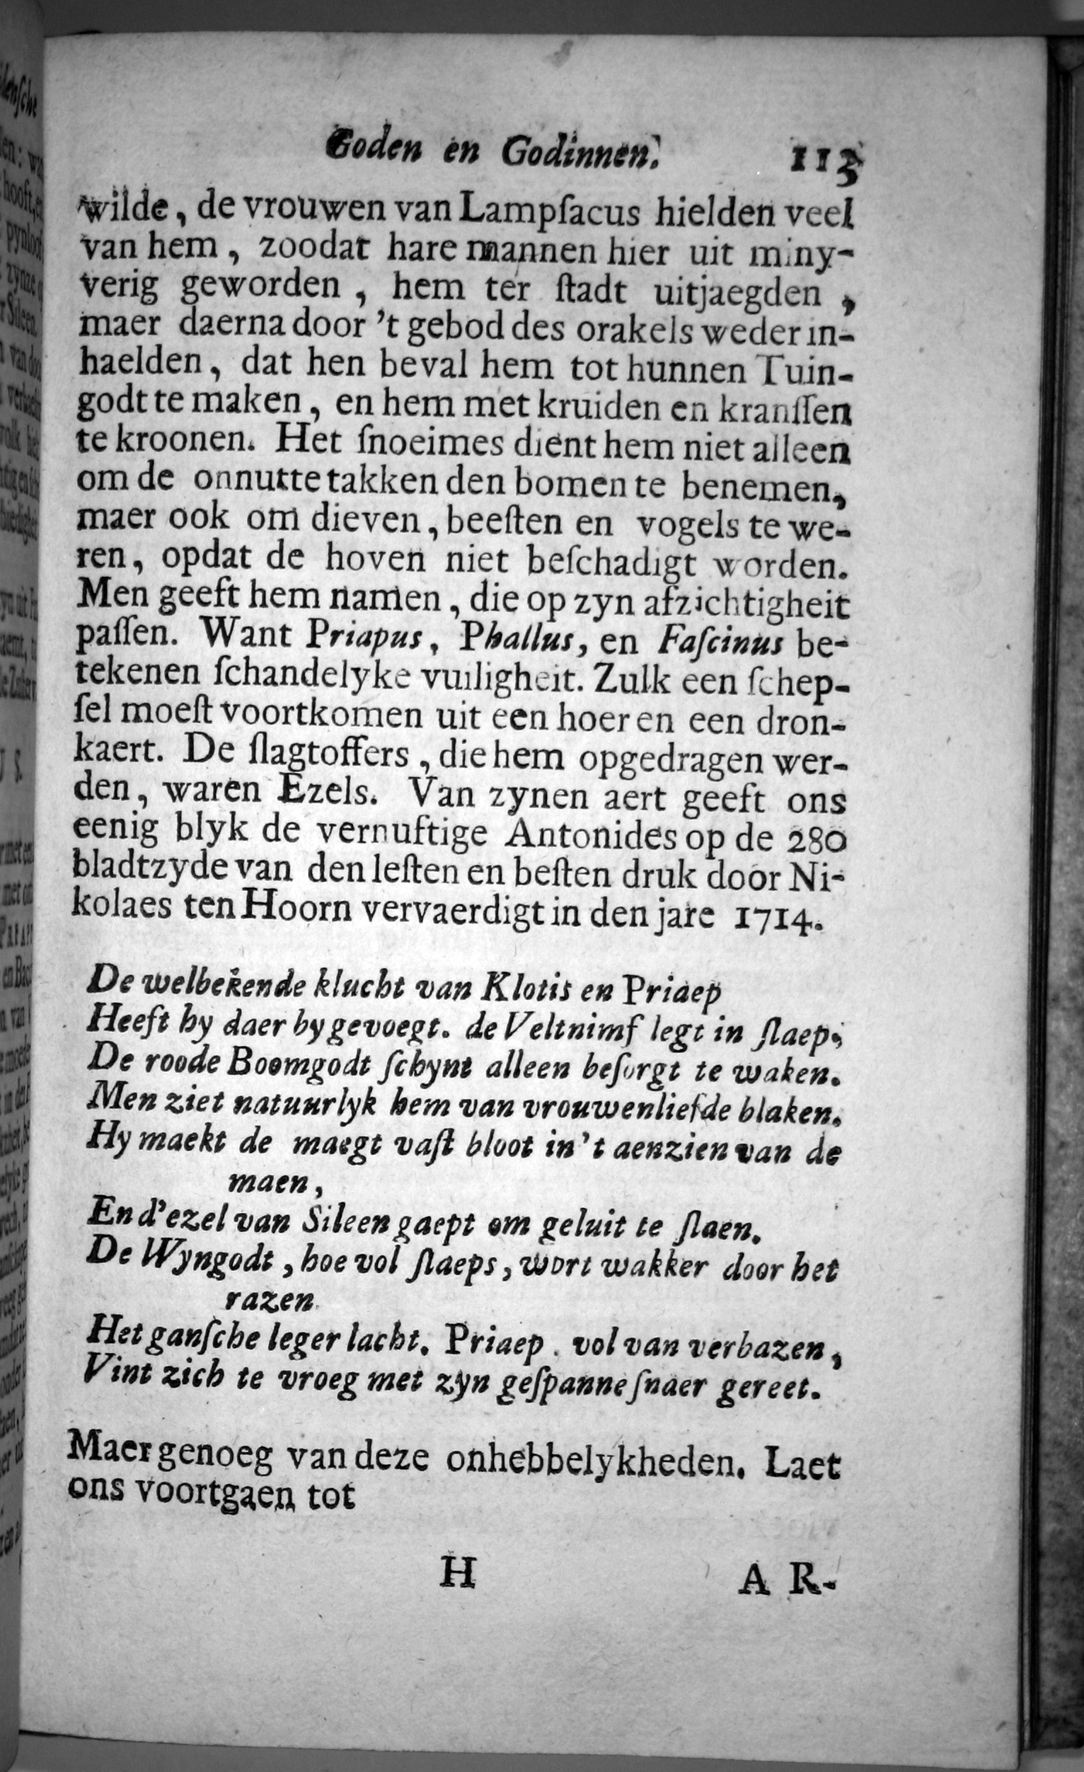 Goden en Godinnen. 113
wilde, de vrouwen van Lampſacus hielden veel
van hem, zoodat hare mannen hier uit miny-
verig geworden, hem ter ſtadt uitjaegden,
maer daerna door 't gebod des orakels weder in-
haelden, dat hen beval hem tot hunnen Tuin-
godt te maken, en hem met kruiden en kranſſen
te kroonen. Het ſnoeimes dient hem niet alleen
om de onnutte takken den bomen te benemen,
maer ook om dieven, beeſten en vogels te we-
ren, opdat de hoven niet beſchadigt worden.
Men geeft hem namen, die op zyn afzichtigheit
paſſen. Want Priapus, Phallus, en Faſcinus be-
tekenen ſchandelyke vuiligheit. Zulk een ſchep-
ſel moeſt voortkomen uit een hoer en een dron-
kaert. De ſlagtoffers, die hem opgedragen wer-
den, waren Ezels. Van zynen aert geeft ons
eenig blyk de vernuftige Antonides op de 280
bladtzyde van den leſten en beſten druk door Ni-
kolaes ten Hoorn vervaerdigt in den jare 1714.
De welbekende klucht van Klotis en Priaep
Heeft hy daer by gevoegt. de Veltnimf legt in ſlaep;
De roode Boomgodt ſchynt alleen beſorgt te waken.
Men ziet natuurlyk hem van vrouwenliefde blaken.
Hy maekt de maegt vaſt bloot in 't aenzien van de
maen,
En d'ezel van Sileen gaept om geluit te ſlaen.
De Wyngodt, hoe vol ſlaeps, wort wakker door het
razen
Het ganſche leger lacht. Priaep. vol van verbazen,
Vint zich te vroeg met zyn geſpanne ſnaer gereet.
Maer genoeg van deze onhebbelykheden. Laet
ons voortgaen tot
H AR-